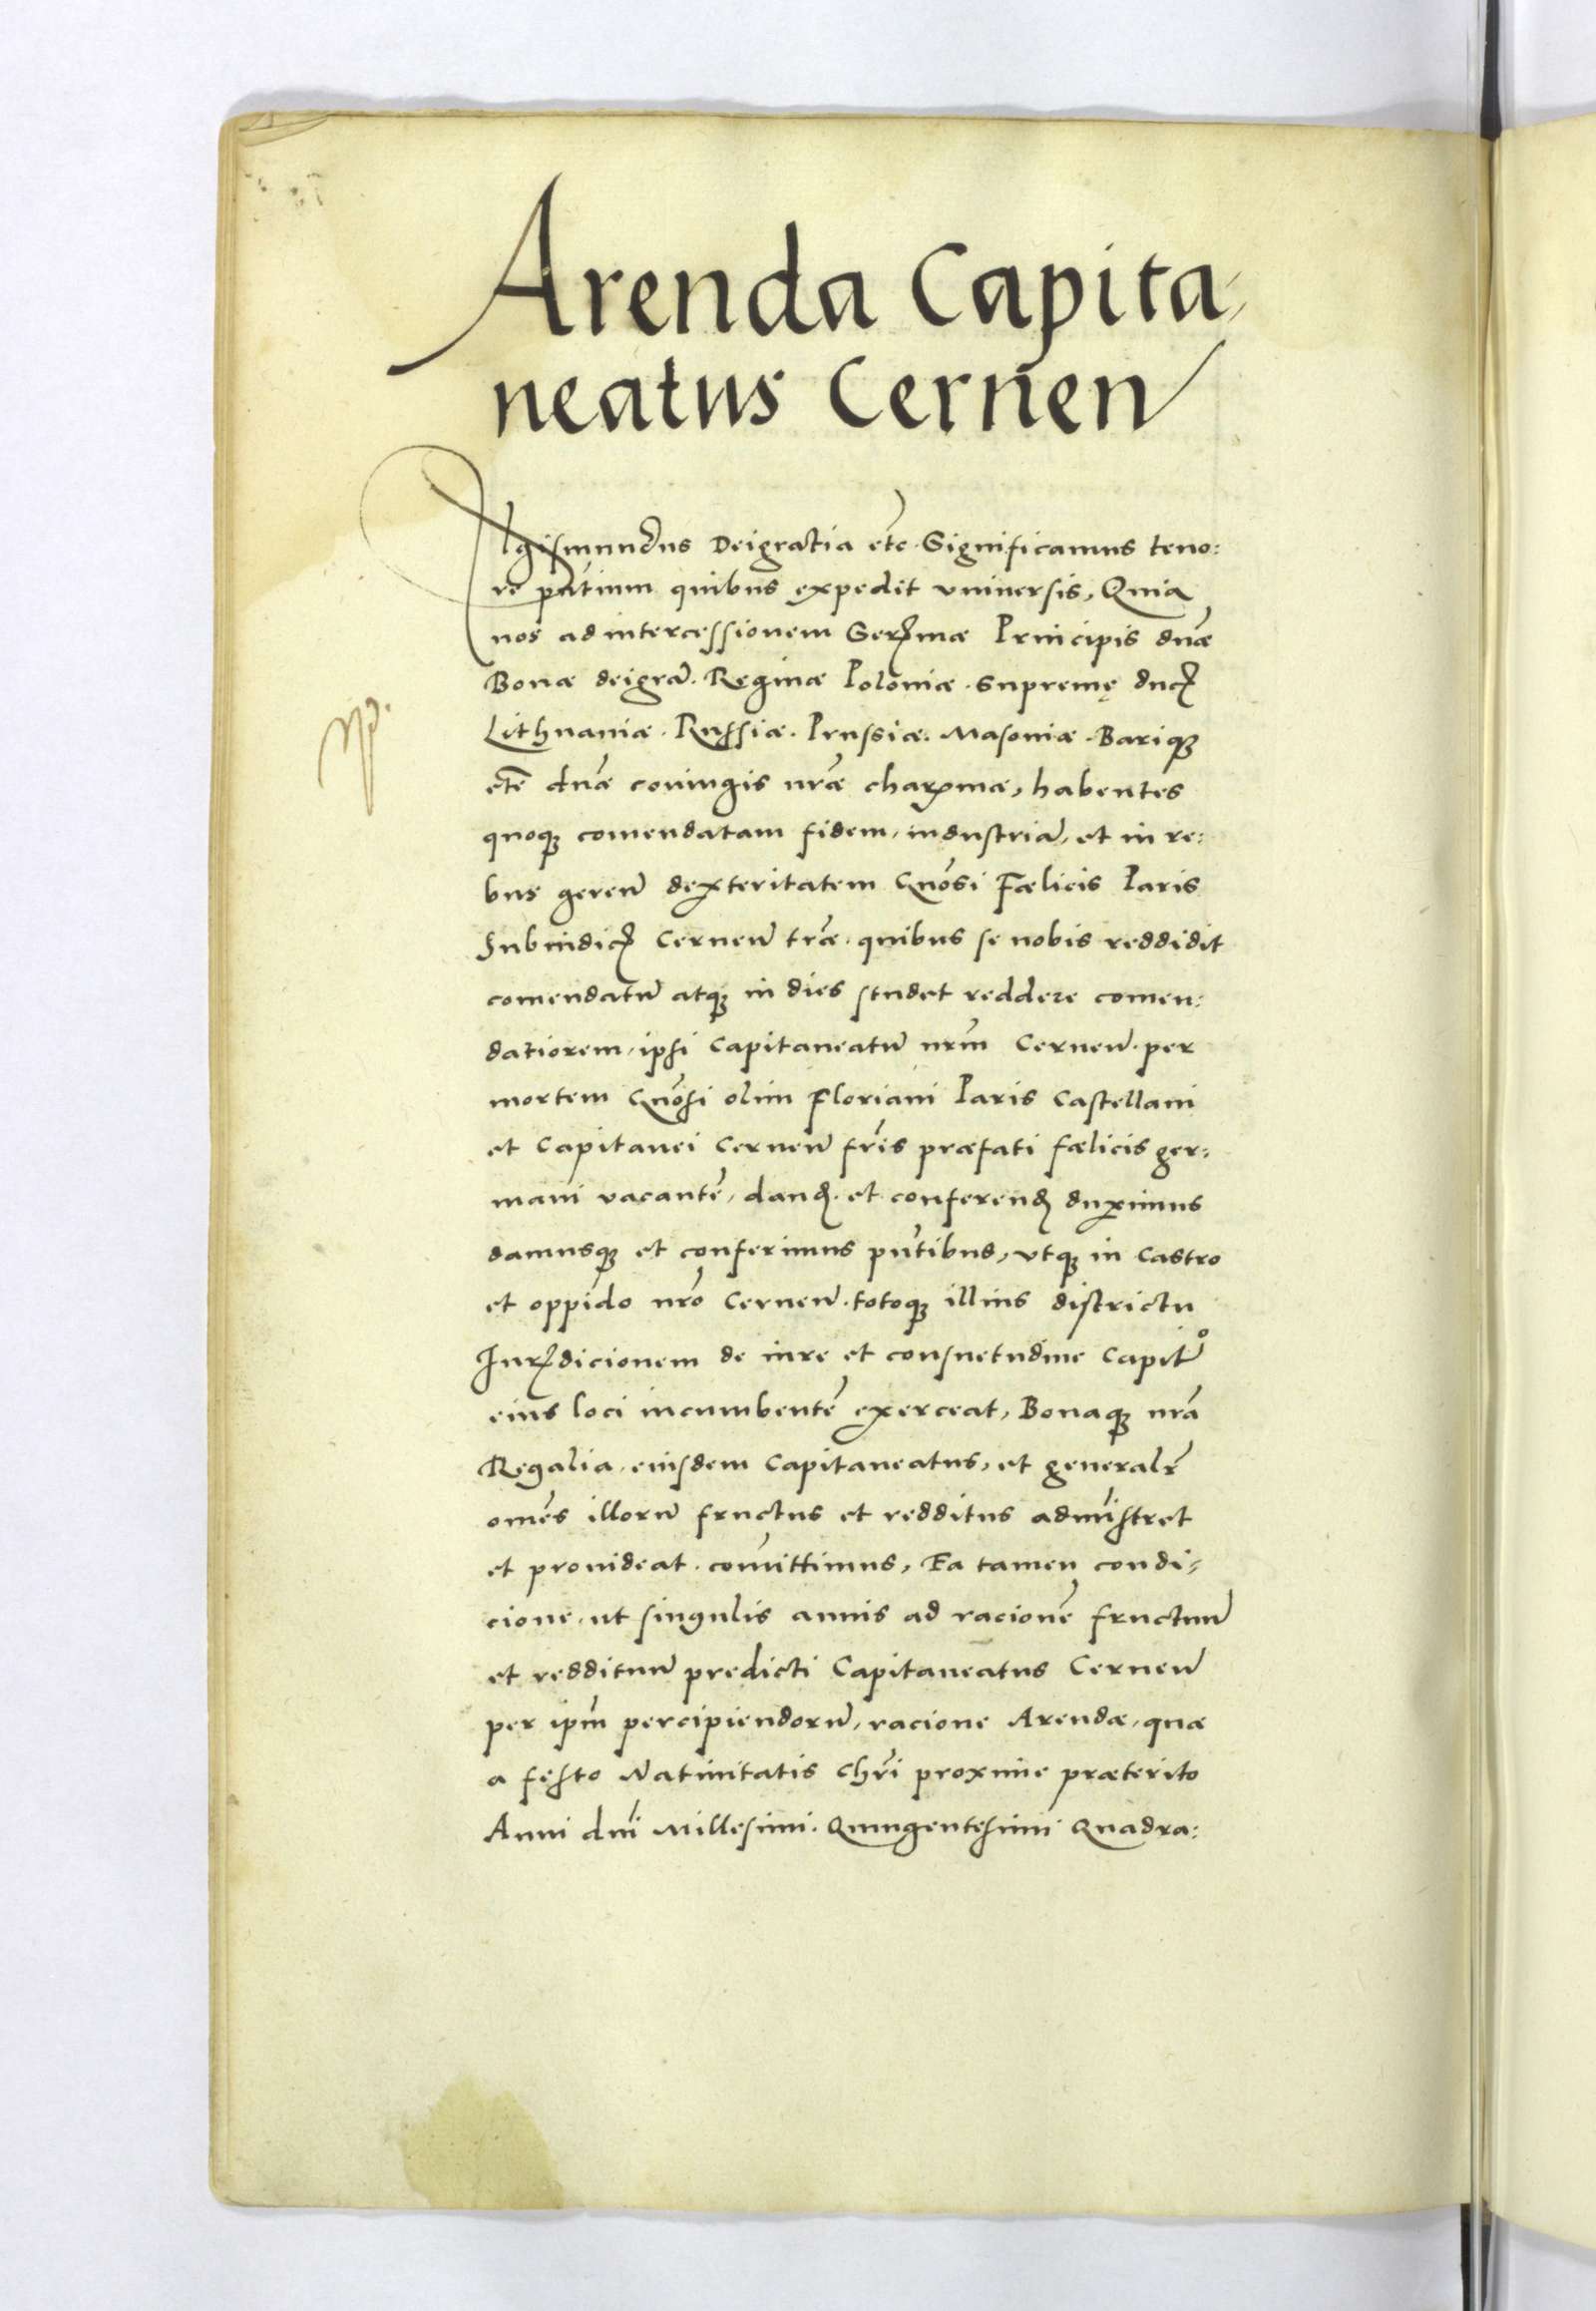 Arenda Capita,
neatus Cernen
Sigismundus Deigratia etc. Significamus teno:
re pñtium quibus expedit vniuersis, Quia
nos ad intercessionem Serẽmæ Principis dñæ
Bonæ deigrã. Reginæ Poloniæ. Supremę duc̃
Lithuaniæ. Russiæ. Prussiæ. Masoniæ. Barique
etc̃ dñæ coniugis nr̃æ char̃mæ, habentes
quoque comendatam fidem, industriã, et in re:
bus geren̄ dexteritatem Gnõsi Fælicis Paris
Subiudic̃ Cernen̄ tr̃æ. quibus se nobis reddidit
comendatũ atque in dies studet reddere comen:
datiorem, ipsi Capitaneatũ nr̃m Cernen̄. per
mortem Gnõsi olim Floriani Paris Castellani
et Capitanei Cernen̄ fr̃is præfati fælicis ger:
mani vacantẽ, dand̃. et conferend̃ duximus
damusque et conferimus pñtibus, vtque in Castro
et oppido nr̃o Cernen̄. totoque illius districtu
Iur̃dicionem de iure et consuetudine Capitñ°
eius loci incumbentẽ exerceat, Bonaque nr̃a
Regalia, eiusdem Capitaneatus, et generalr̃
omẽs illorũ fructus et redditus admĩstret
et prouideat. comittimus, Ea tamen condi,
cione, ut singulis annis ad racionẽ fructuũ
et reddituũ predicti Capitaneatus Cernen̄
per ipm̃ percipiendorũ, racione Arendæ, quæ
a festo Natiuitatis Chr̃i proxime præterito
Anni dñi Millesimi. Quingentesimi Quadra: